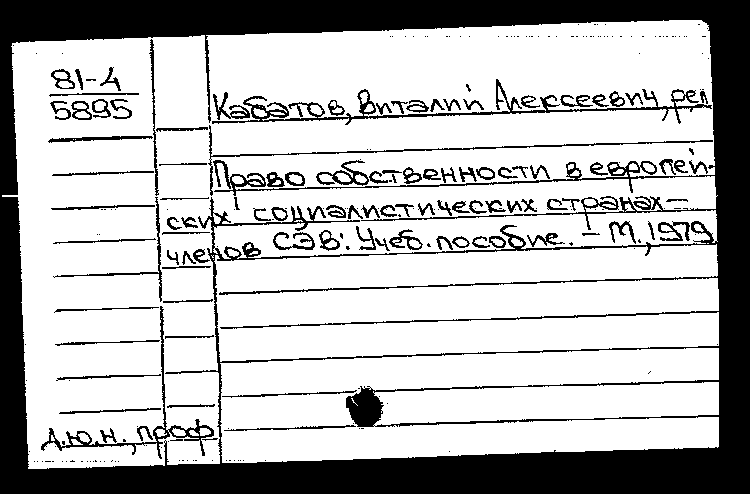 81-4
5895
Кабатов, Виталий Алексеевич, ред
Право собственности в европей-
ских социалистических странах-
членов СЭВ: Учеб. пособие. - М., 1979
д.ю.н., проф